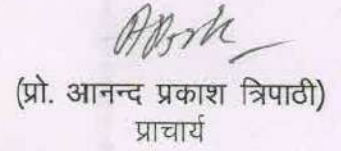 (प्रो. आनन्द प्रकाश त्रिपाठी)
प्राचार्य